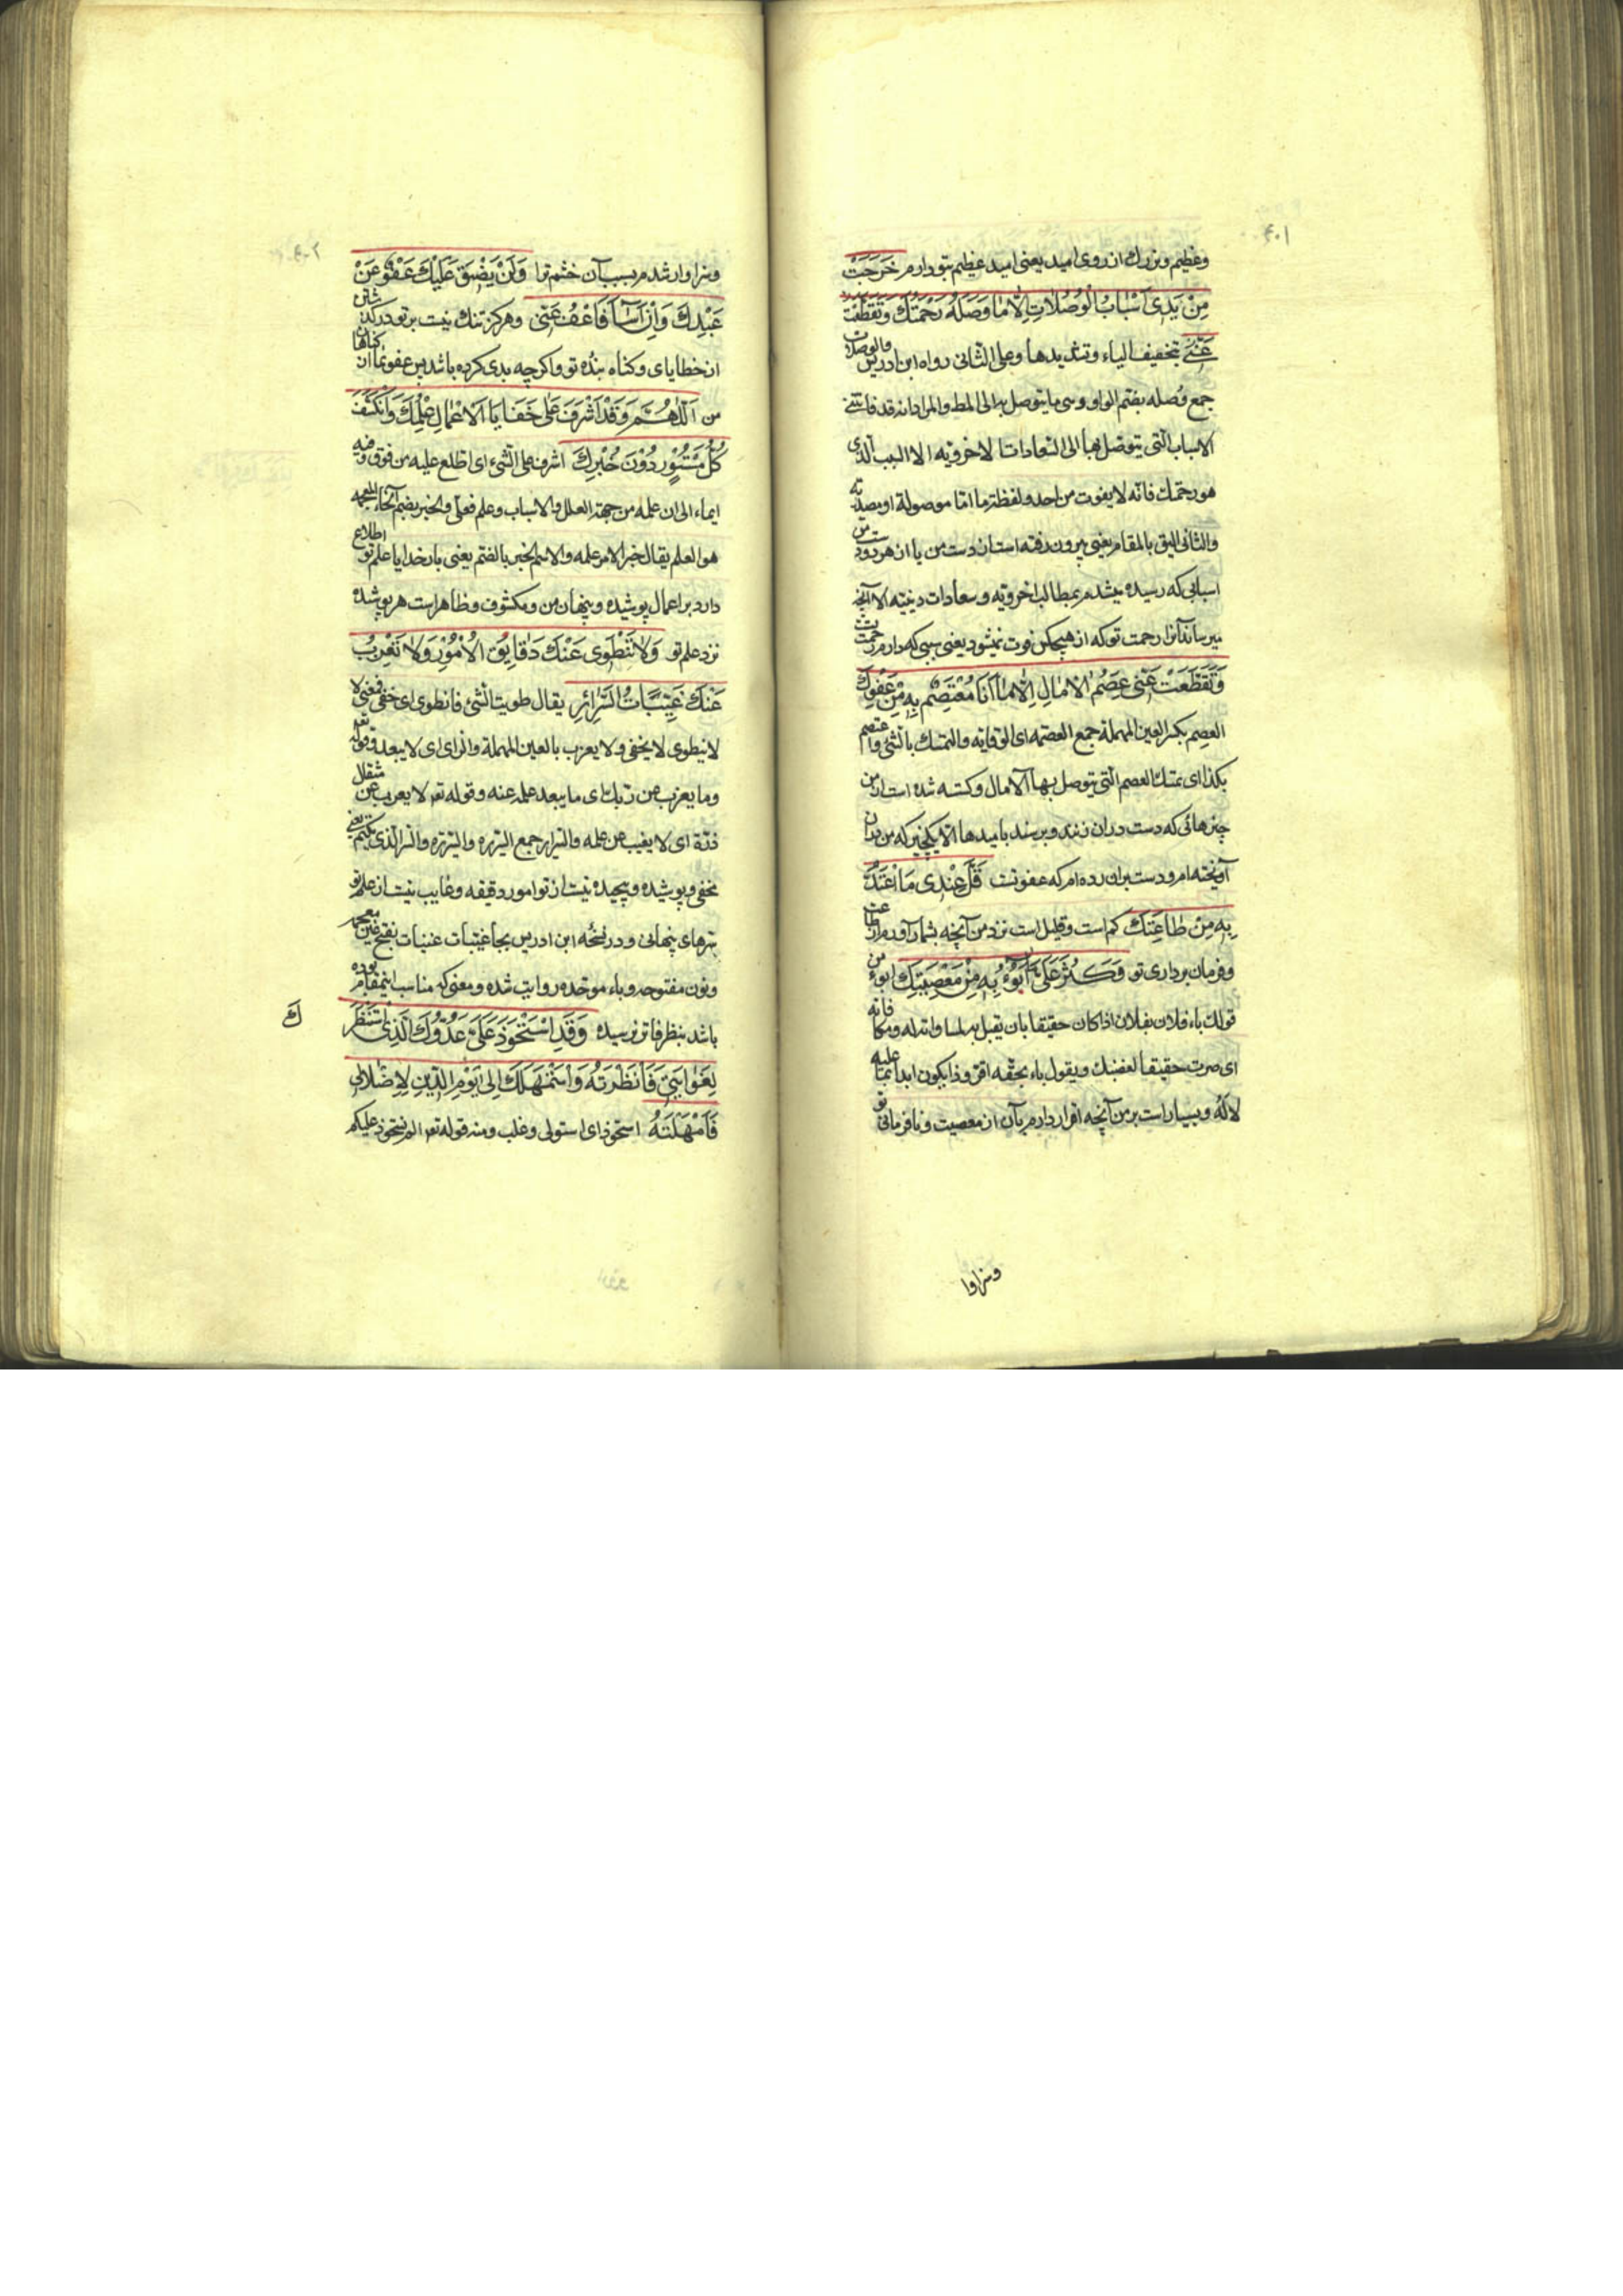 ۴۰۱
وعظیم وبزرك از روی امید یعنی امید عظیم بتو دارم خَرَجَتْ
مِنْ يَدِى اَسْبابُ الْوُصُلاتِ اِلاّ ما وَصَلَهُ رَحْمَتُكَ وَتَقَطَّعَتْ
عَنّى بتخفیف الیاء وتشدیدها وعلی الثانی رواه ابن ادریس والوصلات
جمع وُصله بضم الواو وهی ما یتوصل به الی المط والمراد انه قد فاتتنی
الاسباب التی یتوصل بها الی السعادات الاخرویه الا السبب الذی
هو رحمتك فانه لا یفوت من احد ولفظة ما اما موصولة او مصدریه
والثانی الیق بالمقام یعنی بیرون رفته است از دست من یا از هر دو دست من
اسبابی که رسیده میشدم بمطالب اخرویه وسعادات دینیه الا آنچه
میرساند آنرا رحمت تو که از هیچکس فوت نمیشود یعنی سببی که دارم رحمت تست
وَتَقَطَّعَتْ عَنّى عِصَمُ الْامالِ اِلاّ ما اَنَا مُعْتَصِمٌ بِهِ مِنْ عَفْوِكَ
العصم بکسر العین المهملة جمع العصمه ای الوقایه والتمسك بالشئ واعتصم
بکذا ای تمسك العصم التی یتوصل بها الامال وکسسته شده است از من
چیزهائی که دست در ان زنند وبرسند بامیدها الا یکچیز که من بدان
آویخته ام ودست بران زده ام که عفو تست قَلَّ عِنْدى ما اَعْتَدُّ
بِهِ مِنْ طاعَتِكَ کم است وقلیل است نزد من آنچه بشمار آورم از طاعت
وفرمان برداری تو وَكَثُرَ عَلَىَّ ما اَبُوءُ بِهِ مِنْ مَعْصِيَتِكَ ابوء من
قولك باء فلان بفلان اذا کان حقیقا بان یقبل به لمساواته له ومکافاته
ای صرت حقیقا لغضبك ویقول باء بحقه اقر وذا یکون ابدا بما علیه
لا لَهُ وبسیار است بر من آنچه اقرار دارم بآن از معصیت ونافرمانی تو
وسزاوا
۴۰۲
وسزاوار شدم بسبب آن خشم ترا وَلَنْ يَضيقَ عَلَيْكَ عَفْوٌ عَنْ
عَبْدِكَ وَاِنْ اَسآءَ فَاعْفُ عَنّى وهرکز تنك نیست بر تو درکذشتن
از خطایای وکناه بنده تو واکرچه بدی کرده باشد پس عفو نما از کناهان
من اَللّهُمَّ وَقَدْ اَشْرَفَ عَلى خَفايَا الْاَعْمالِ عِلْمُكَ وَانْكَشَفَ
كُلُّ مَسْتُورٍ دُونَ خُبْرِكَ اشرف علی الشئ ای اطلع علیه من فوق وفیه
ایماء الی ان علمه من جهة العلل والاسباب وعلم فعلی والخبر بضم الخاء المعجمه
هو العلم یقال خبر الامر علمه والاسم الخبر بالضم یعنی بار خدایا علم تو اطلاع
دارد بر اعمال پوشیده وپنهان من ومکشوف وظاهر است هر پوشیده
نزد علم تو وَلا تَنْطَوى عَنْكَ دَقايِقُ الْاُمُورِ وَلا تَعْزُبُ
عَنْكَ غَيِّباتُ السَّرائِرِ یقال طویت الشئ فانطوی ای خفی فمعنی لا
لا ینطوی لا یخفی ولا یعزب بالعین المهملة والزای ای لا یبعد وقوله تعم
وما یعزب عن ربك ای ما یبعد علمه عنه وقوله تعم لا یعزب عن مثقال
ذرّة ای لا یغیب عن علمه والسرایر جمع السریره والسریره والسر الذی یکتم یعنی
مخفی وپوشیده وپیچیده نیست از تو امور دقیقه وغایب نیست از علم تو
سرهای پنهانی ودر نسخه ابن ادریس بجا غیبات غنبات بفتح غین معجمه
ونون مفتوحه وباء موحده روایت شده ومعنی که مناسب اینمقام بوده
باشد بنظر فاتر نرسیده وَقَدِ اسْتَحْوَذَ عَلَىَّ عَدُوُّكَ الَّذِى اسْتَنْظَرَ ك
لِغَوايَتى فَاَنْظَرْتَهُ وَاسْتَمْهَلَكَ اِلى يَوْمِ الدّينِ لِاِضْلالى
فَاَمْهَلْتَهُ استحوذ ای استولی وغلب ومنه قوله تعم الم نستحوذ علیکم